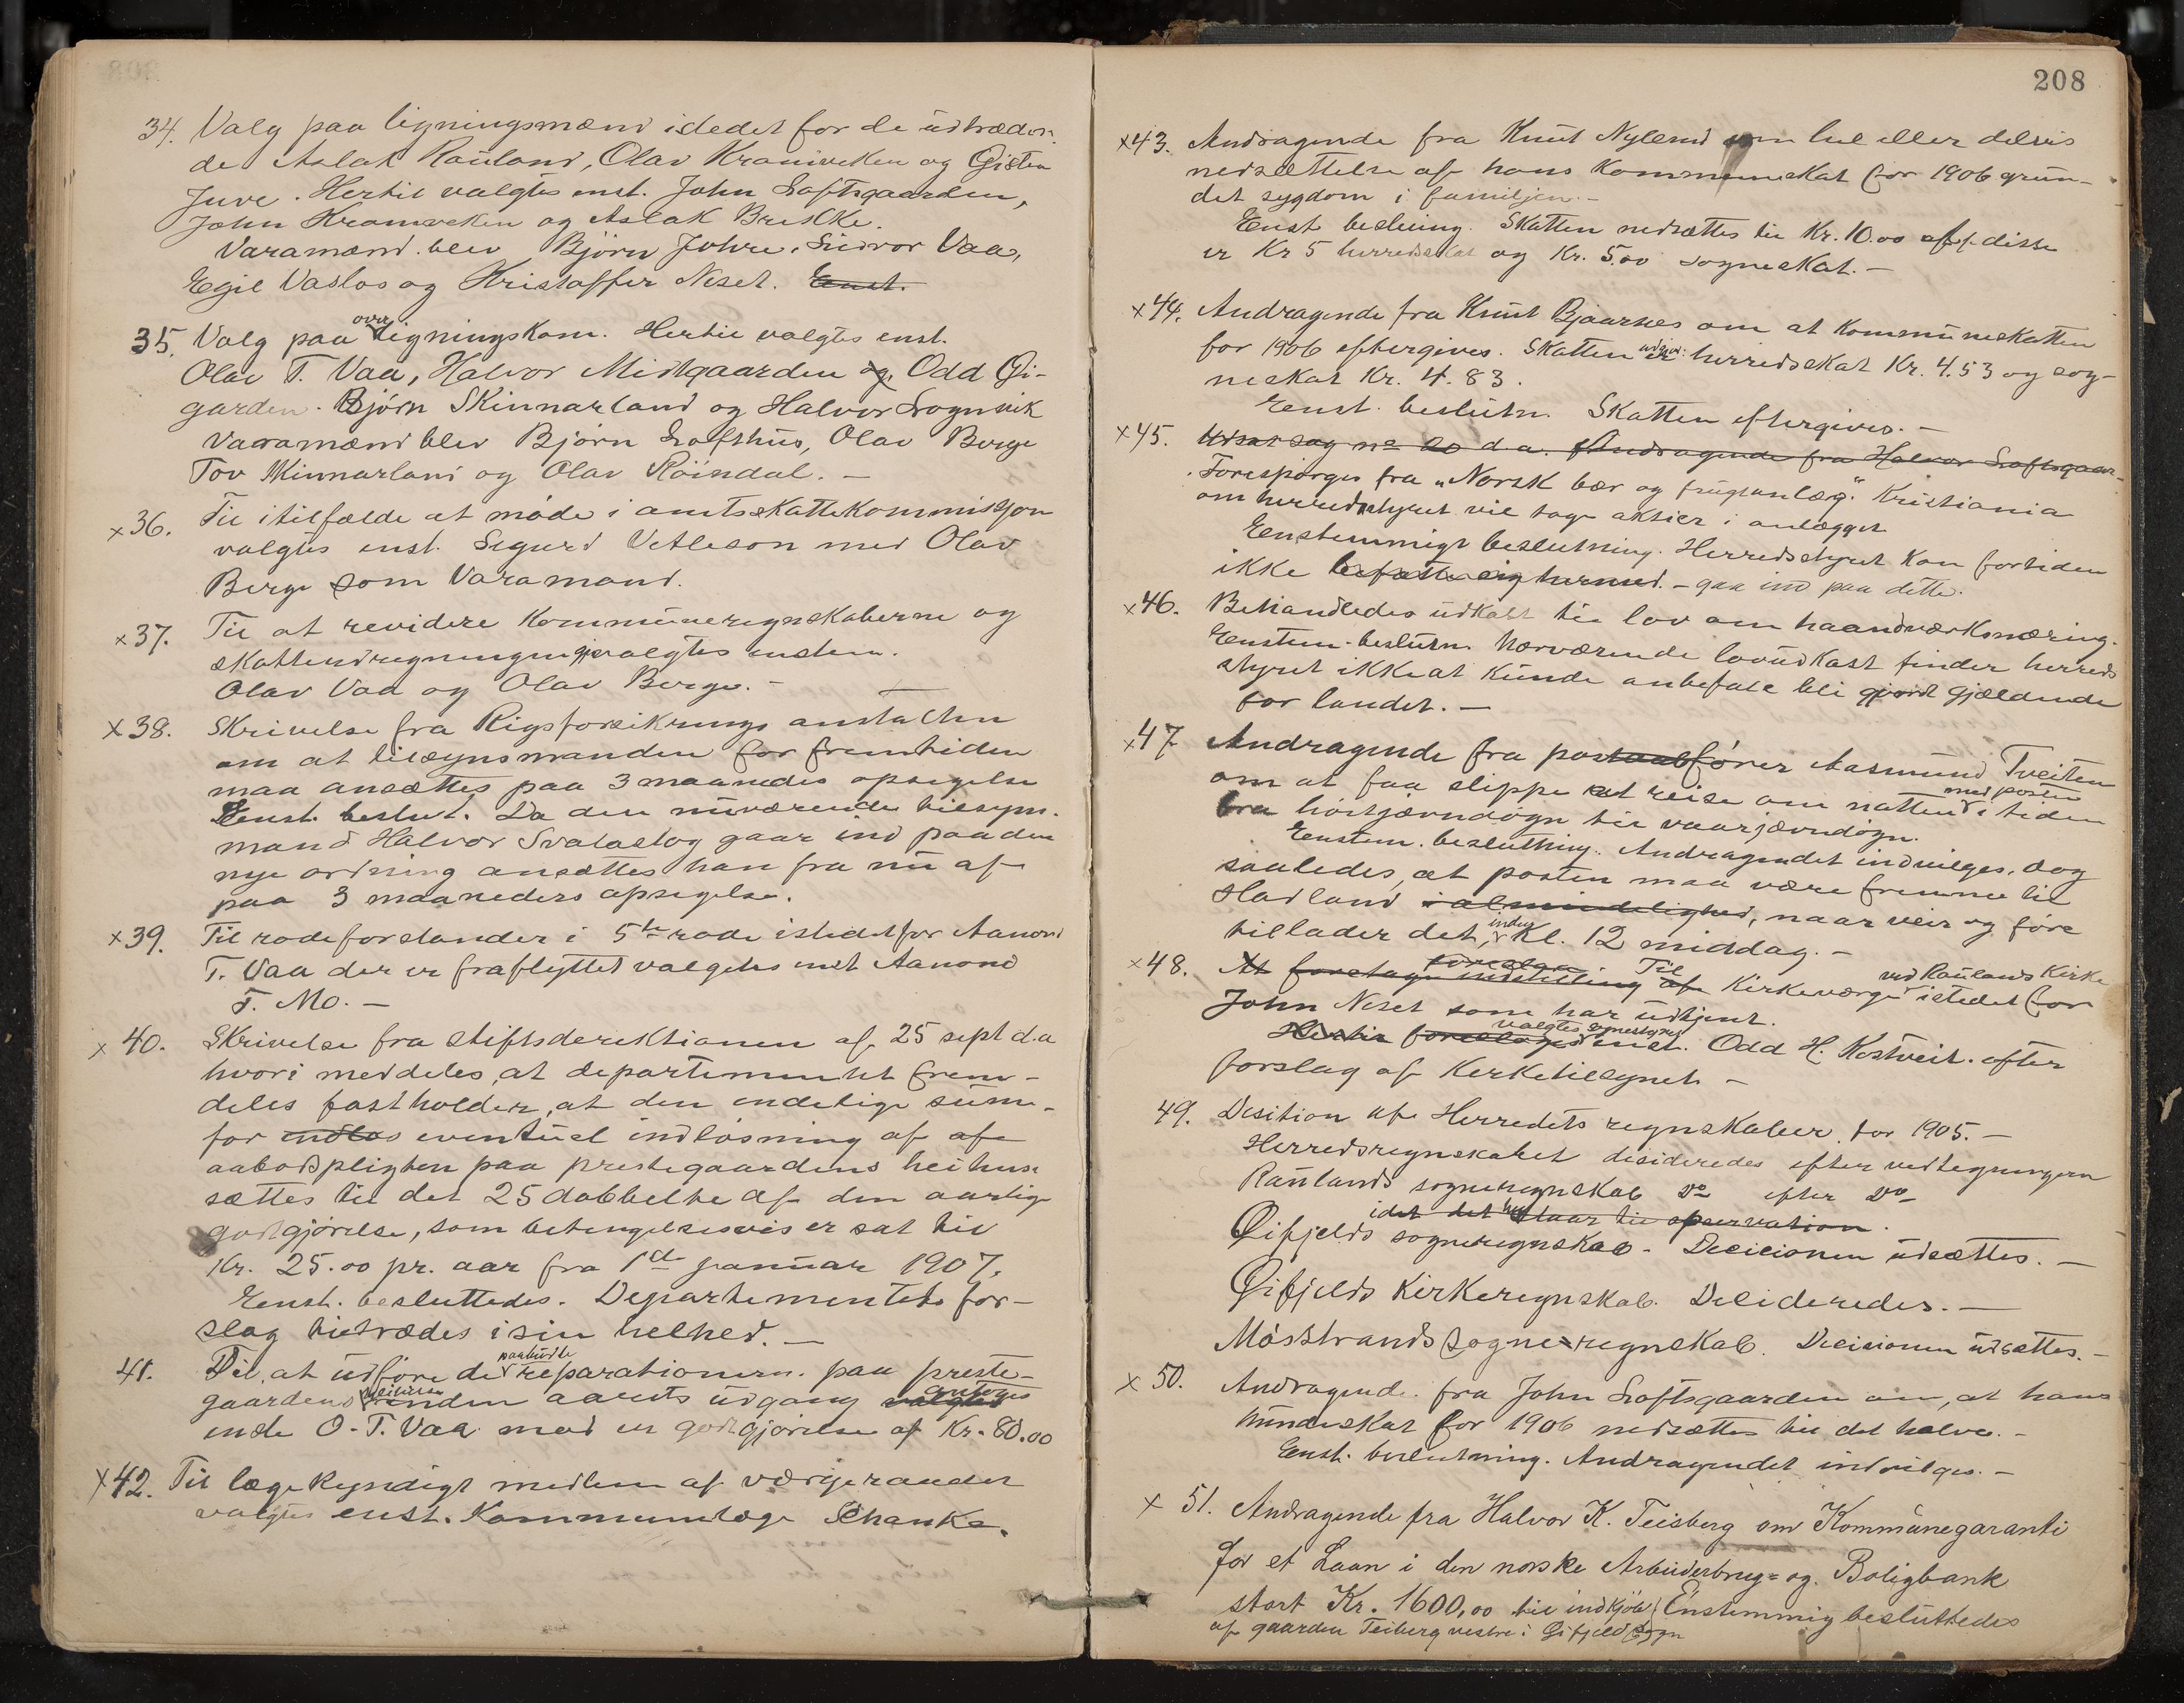 34. Valg paa ligningsmænd istedet for de udtræden-
de Aslak Rauland, Olav Kromviken og Gisten
Juve. Hertil valgtes enst. John Loftsgaarden,
John Kromviken og Aslak Brekke.
Varamænd blev Björn Johre, Gudvor Vaa,
Egil Vaslos og Kristoffer Neset. Enst.
35. Valg paa overligningskom. Hertil valgtes enst.
Olav T. Vaa, Halvor Midtgaarden og, Odd Øi-
garden. Bjørn Skinnarland og Halvor Lognvik
Varamænd blev Bjørn Lofthus, Olav Berge
Tov Skinnarland og Olav Röindal. —
x 36. Til i tilfælde at møde i amtsskattekommissjon
valgtes enst. Segurd Vetleson med Olav
Berge som Varamand.
x 37. Til at revidere Kommuneregnskaberne og
skatteudregningen gjenvalgtes endem.
Olav Vaa og Olav Berge. —
x 38. Skrivelse fra Rigsforsikrings anstalten
om at tilsynsmanden for fremtiden
maa ansættes paa 3 maaneders opsigelse
Eenst. beslut. Da den nuværende tilsyns-
mand Halvor Svalastog gaar ind paa den
nye ordning ansættes han fra nu af
paa 3 maaneders opsigelse.
x 39. Til rodeforstander i 5te rode istedetfor Aanond
T. Vaa der er fraflyttet valgtes enst Aanond
T. Mo. —
x 40. Skrivelse fra stiftsderektionen af 25 sept d.a
hvori meddeles, at departementet frem-
deles fastholder, at den endelige sum
for indløs eventuel indløsning af af
aabodspligten paa prestegaardens heihuse
sættes til det 25 dobbelte af den aarlige
godtgjørelse, som betingelsesvis er sat til
Kr. 25.00 pr. aar fra 1ste januar 1907.
Eenst. besluttedes. Departementets for-
slag tiltrædes i sin helhed. —
41. Til, at udføre de paabudte reparationern. paa preste-
gaardens inden aarets udgang valgtes antoges
ende O. T. Vaa mod en godtgjørelse af Kr. 80.00
x 42. Til lægekyndigt medlem af værgeraadet
valgtes enst. Kommunelæge Schanke.
208
x 43. Andragende fra Knut Nylend om hel eller delvis
nedsættelse af hans Kommuneskat for 1906 grun-
det sygdom i familjen. —
Eenst beslutning. Skatten nedsættes til Kr. 10.00 af disse
er Kr 5 herredskat og Kr. 5.00 sogneskat. —
x 44. Andragende fra Knut Bjaarnes om at Kommuneskatten
for 1906 eftergives. Skatten udgjør: herredsskat Kr. 4.53 og sog-
neskat Kr. 4.83.
Eenst. beslutn. Skatten eftergives. —
x 45. Udsat sag no 20 d.a. Andragende fra Halvor Loftsgaar-
Forespørges fra „Norsk bær og frugtanlæg." Kristiania
om herredsstyret vil tage aktier i anlægget
Eenstemmigt beslutning. Herredsstyret kan fortiden
ikke befatte sig hermed. — gaa ind paa dette.
x 46. Behandledes udkast til lov om haandværksnæring.
Eenstem. beslutn. Nærværende lovudkast finder herreds
styret ikke at kunde anbefale bli gjort gjældende
for landet. —
x 47 Andragende fra postaabfører Aasmund Tveiten
om at faa slippe at reise om natten med posten i tiden
fra høstjævndøgn til vaarjævndøgn.
Eenstem. beslutning. Andragendet indvilges, dog
saaledes, at posten maa være fremme til
Hadland i almindelighed, naar veir og føre
tillader det, inden Kl. 12 middag. —
x 48. At foretage foreslaa indstilling af Til Kirkeværge ved Raulands Kirke istedet for
John Neset som har udtjent.
Hertil foresloges valgtes enst. Odd H. Kostveit. efter
forslag af Kerketilsynet —
49. Desition af Herredets regnskaber for 1905. —
Herredsregnskabet desideredes efter vedtegningern
Raulands sogneregnskab do efter do
idet det staar til observation.
Øifjelds sogneregnskab. Decicionen udsættes. —
Øifjelds Kirkeregnskab. Desideredes. —
Mösstrands sogne-regnskab. Decicionen udsættes. —
x 50. Andragende fra John Loftsgaarden om, at hans
hundeskat for 1906 nedsættes til det halve. —
Eenst. beslutning. Andragendet indvilges. —
x 51. Andragende fra Halvor K. Teisberg om Kommunegaranti
for et Laan i den norske Arbeiderbrug= og Boligbank
stort Kr. 1600,00 til indkjøb Enstemmig besluttedes
af gaarden Teiberg vestre i Øifjeld sogn